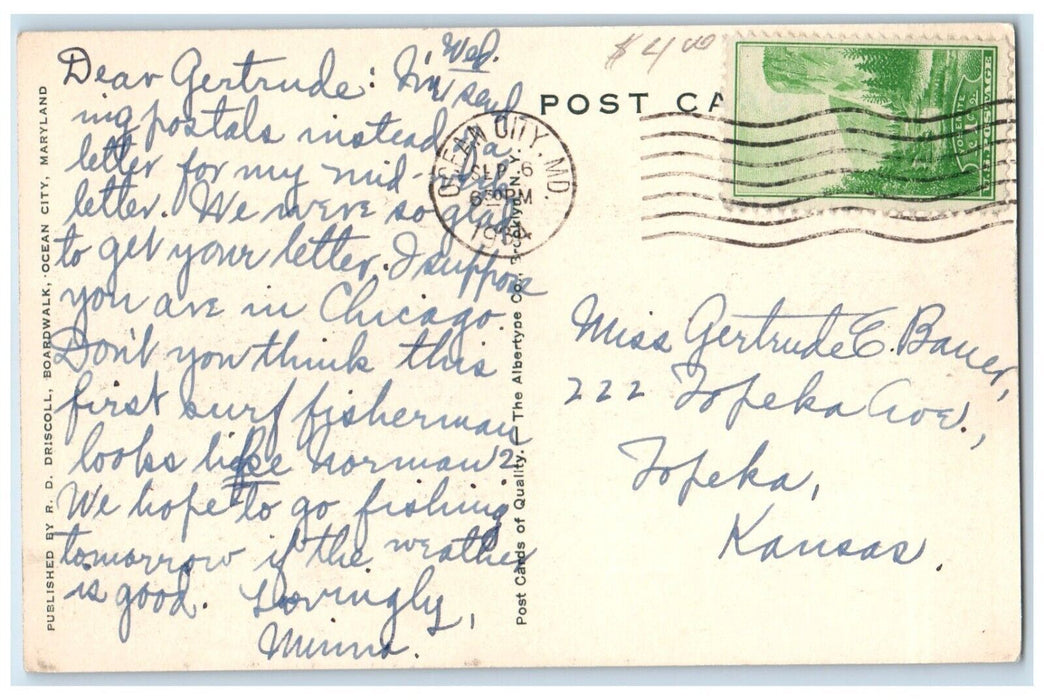 Wed.
Dear Gertrude: I'm send
ing postals instead of a
letter for my mid-week
letter. We were so glad
to get your letter. I suppose
you are in Chicago.
Don't you think this
first surf fisherman
looks like Norman?
We hope to go fishing
tomorrow if the weather
is good. Lovingly,
Minna.
PUBLISHED BY R. D. DRISCOLL, BOARDWALK, OCEAN CITY, MARYLAND
Post Cards of Quality. — The Albertype Co., Brooklyn, N. Y.
$4.00
POST CA
OCEAN CITY, MD.
SEP 6
6 30 PM
YOSEMITE
1¢
U.S. POSTAGE
Miss Gertrude E. Bauer,
222 Topeka Ave.,
Topeka,
Kansas.